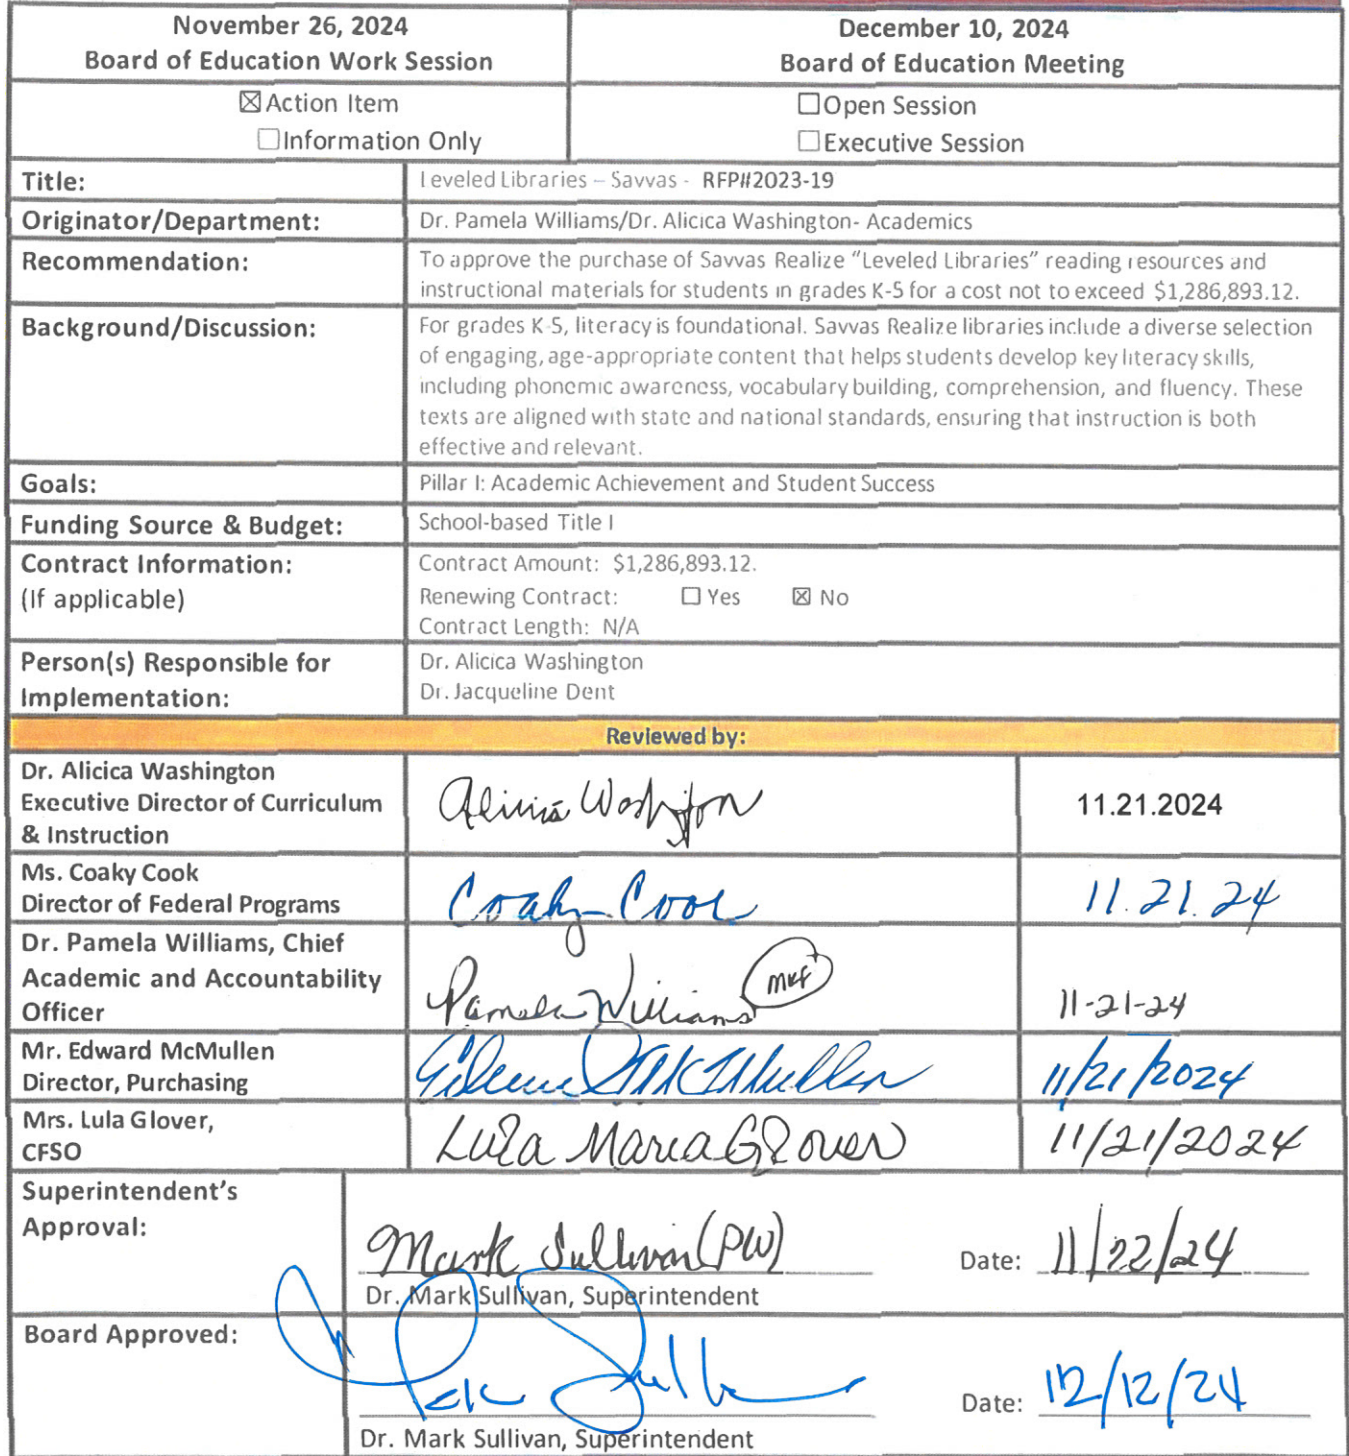 November 26, 2024
Board of Education Work Session
December 10, 2024
Board of Education Meeting
☒Action Item
☐Information Only
☐Open Session
☐Executive Session
Title:
Leveled Libraries – Savvas - RFP#2023-19
Originator/Department:
Dr. Pamela Williams/Dr. Alicica Washington- Academics
Recommendation:
To approve the purchase of Savvas Realize “Leveled Libraries” reading resources and
instructional materials for students in grades K-5 for a cost not to exceed $1,286,893.12.
Background/Discussion:
For grades K-5, literacy is foundational. Savvas Realize libraries include a diverse selection
of engaging, age-appropriate content that helps students develop key literacy skills,
including phonemic awareness, vocabulary building, comprehension, and fluency. These
texts are aligned with state and national standards, ensuring that instruction is both
effective and relevant.
Goals:
Pillar I: Academic Achievement and Student Success
Funding Source & Budget:
School-based Title I
Contract Information:
(If applicable)
Contract Amount: $1,286,893.12.
Renewing Contract: ☐ Yes ☒ No
Contract Length: N/A
Person(s) Responsible for
Implementation:
Dr. Alicica Washington
Dr. Jacqueline Dent
Reviewed by:
Dr. Alicica Washington
Executive Director of Curriculum
& Instruction
Alicica Washington
11.21.2024
Ms. Coaky Cook
Director of Federal Programs
Coaky Cook
11.21.24
Dr. Pamela Williams, Chief
Academic and Accountability
Officer
Pamela Williams
11-21-24
Mr. Edward McMullen
Director, Purchasing
McMullen
11/21/2024
Mrs. Lula Glover,
CFSO
Lula Maria Glover
11/21/2024
Superintendent’s
Approval:
Mark Sullivan (PW)
Date: 11/22/24
Dr. Mark Sullivan, Superintendent
Board Approved:
Date: 12/12/24
Dr. Mark Sullivan, Superintendent